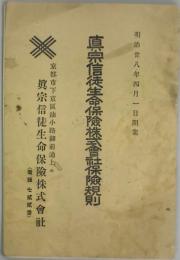 明治廿八年四月一日開業
真宗信徒生命保險株式會社保險規則
京都市下京區油小路御前通上ル
眞宗信徒生命保險株式會社
(電話七貳貳番)